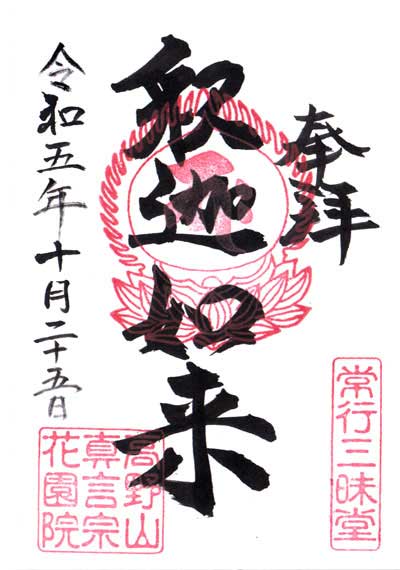 奉拝
常行三昧堂
釈迦如来
高野山
真言宗
花園院
令和五年十月二十五日